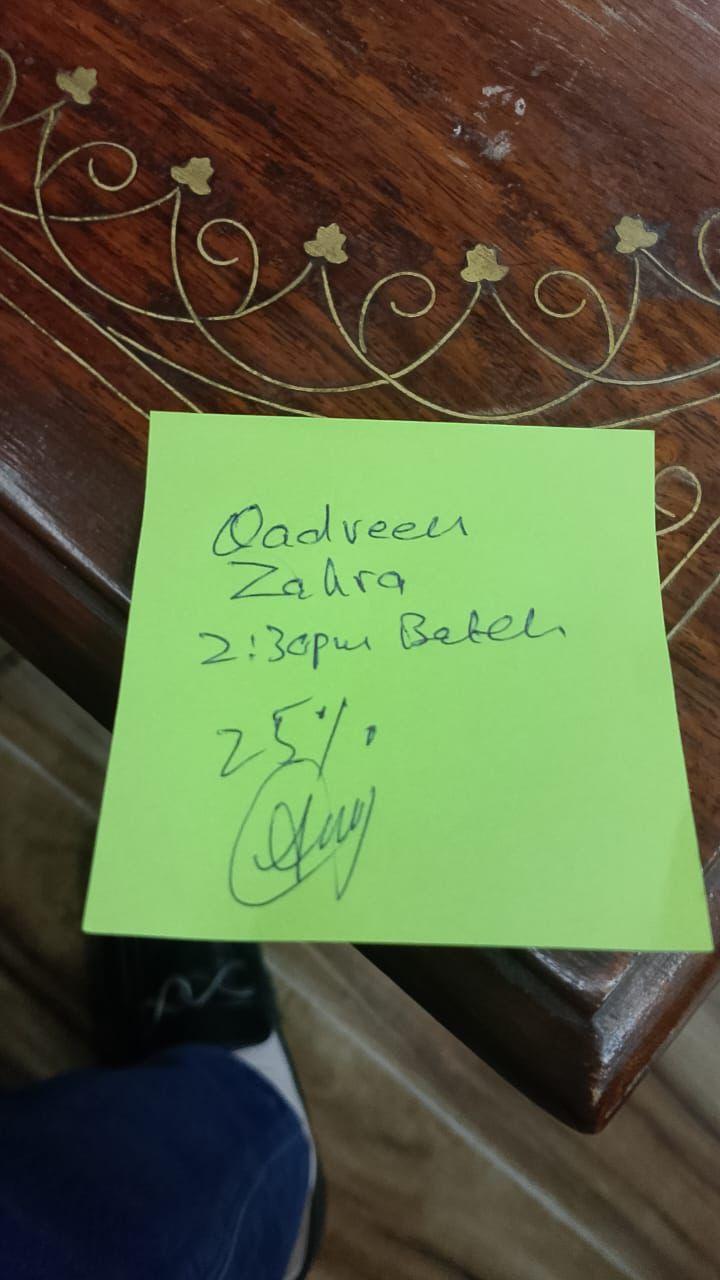 Qadreen
Zahra
2:30pm Batch
25%